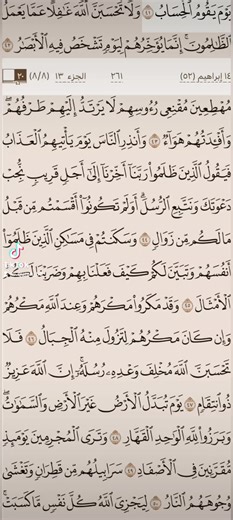 يَوْمَ يَقُومُ ٱلْحِسَابُ ٤١ وَلَا تَحْسَبَنَّ ٱللَّهَ غَٰفِلًا عَمَّا يَعْمَلُ
ٱلظَّٰلِمُونَ ۚ إِنَّمَا يُؤَخِّرُهُمْ لِيَوْمٍ تَشْخَصُ فِيهِ ٱلْأَبْصَٰرُ ٤٢
١٤ إبراهيم (٥٢) ٢٦١ الجزء ١٣ (٨/٨)
مُهْطِعِينَ مُقْنِعِى رُءُوسِهِمْ لَا يَرْتَدُّ إِلَيْهِمْ طَرْفُهُمْ ۖ
وَأَفْـِٔدَتُهُمْ هَوَآءٌ ٤٣ وَأَنذِرِ ٱلنَّاسَ يَوْمَ يَأْتِيهِمُ ٱلْعَذَابُ
فَيَقُولُ ٱلَّذِينَ ظَلَمُوا۟ رَبَّنَآ أَخِّرْنَآ إِلَىٰٓ أَجَلٍ قَرِيبٍ نُّجِبْ
دَعْوَتَكَ وَنَتَّبِعِ ٱلرُّسُلَ ۗ أَوَلَمْ تَكُونُوٓا۟ أَقْسَمْتُم مِّن قَبْلُ
مَا لَكُم مِّن زَوَالٍ ٤٤ وَسَكَنتُمْ فِى مَسَٰكِنِ ٱلَّذِينَ ظَلَمُوٓا۟
أَنفُسَهُمْ وَتَبَيَّنَ لَكُمْ كَيْفَ فَعَلْنَا بِهِمْ وَضَرَبْنَا لَكُمُ
ٱلْأَمْثَالَ ٤٥ وَقَدْ مَكَرُوا۟ مَكْرَهُمْ وَعِندَ ٱللَّهِ مَكْرُهُمْ
وَإِن كَانَ مَكْرُهُمْ لِتَزُولَ مِنْهُ ٱلْجِبَالُ ٤٦ فَلَا
تَحْسَبَنَّ ٱللَّهَ مُخْلِفَ وَعْدِهِۦ رُسُلَهُۥٓ ۗ إِنَّ ٱللَّهَ عَزِيزٌ
ذُو ٱنتِقَامٍ ٤٧ يَوْمَ تُبَدَّلُ ٱلْأَرْضُ غَيْرَ ٱلْأَرْضِ وَٱلسَّمَٰوَٰتُ ۖ
وَبَرَزُوا۟ لِلَّهِ ٱلْوَٰحِدِ ٱلْقَهَّارِ ٤٨ وَتَرَى ٱلْمُجْرِمِينَ يَوْمَئِذٍ
مُّقَرَّنِينَ فِى ٱلْأَصْفَادِ ٤٩ سَرَابِيلُهُم مِّن قَطِرَانٍ وَتَغْشَىٰ
وُجُوهَهُمُ ٱلنَّارُ ٥٠ لِيَجْزِىَ ٱللَّهُ كُلَّ نَفْسٍ مَّا كَسَبَتْ ۚ